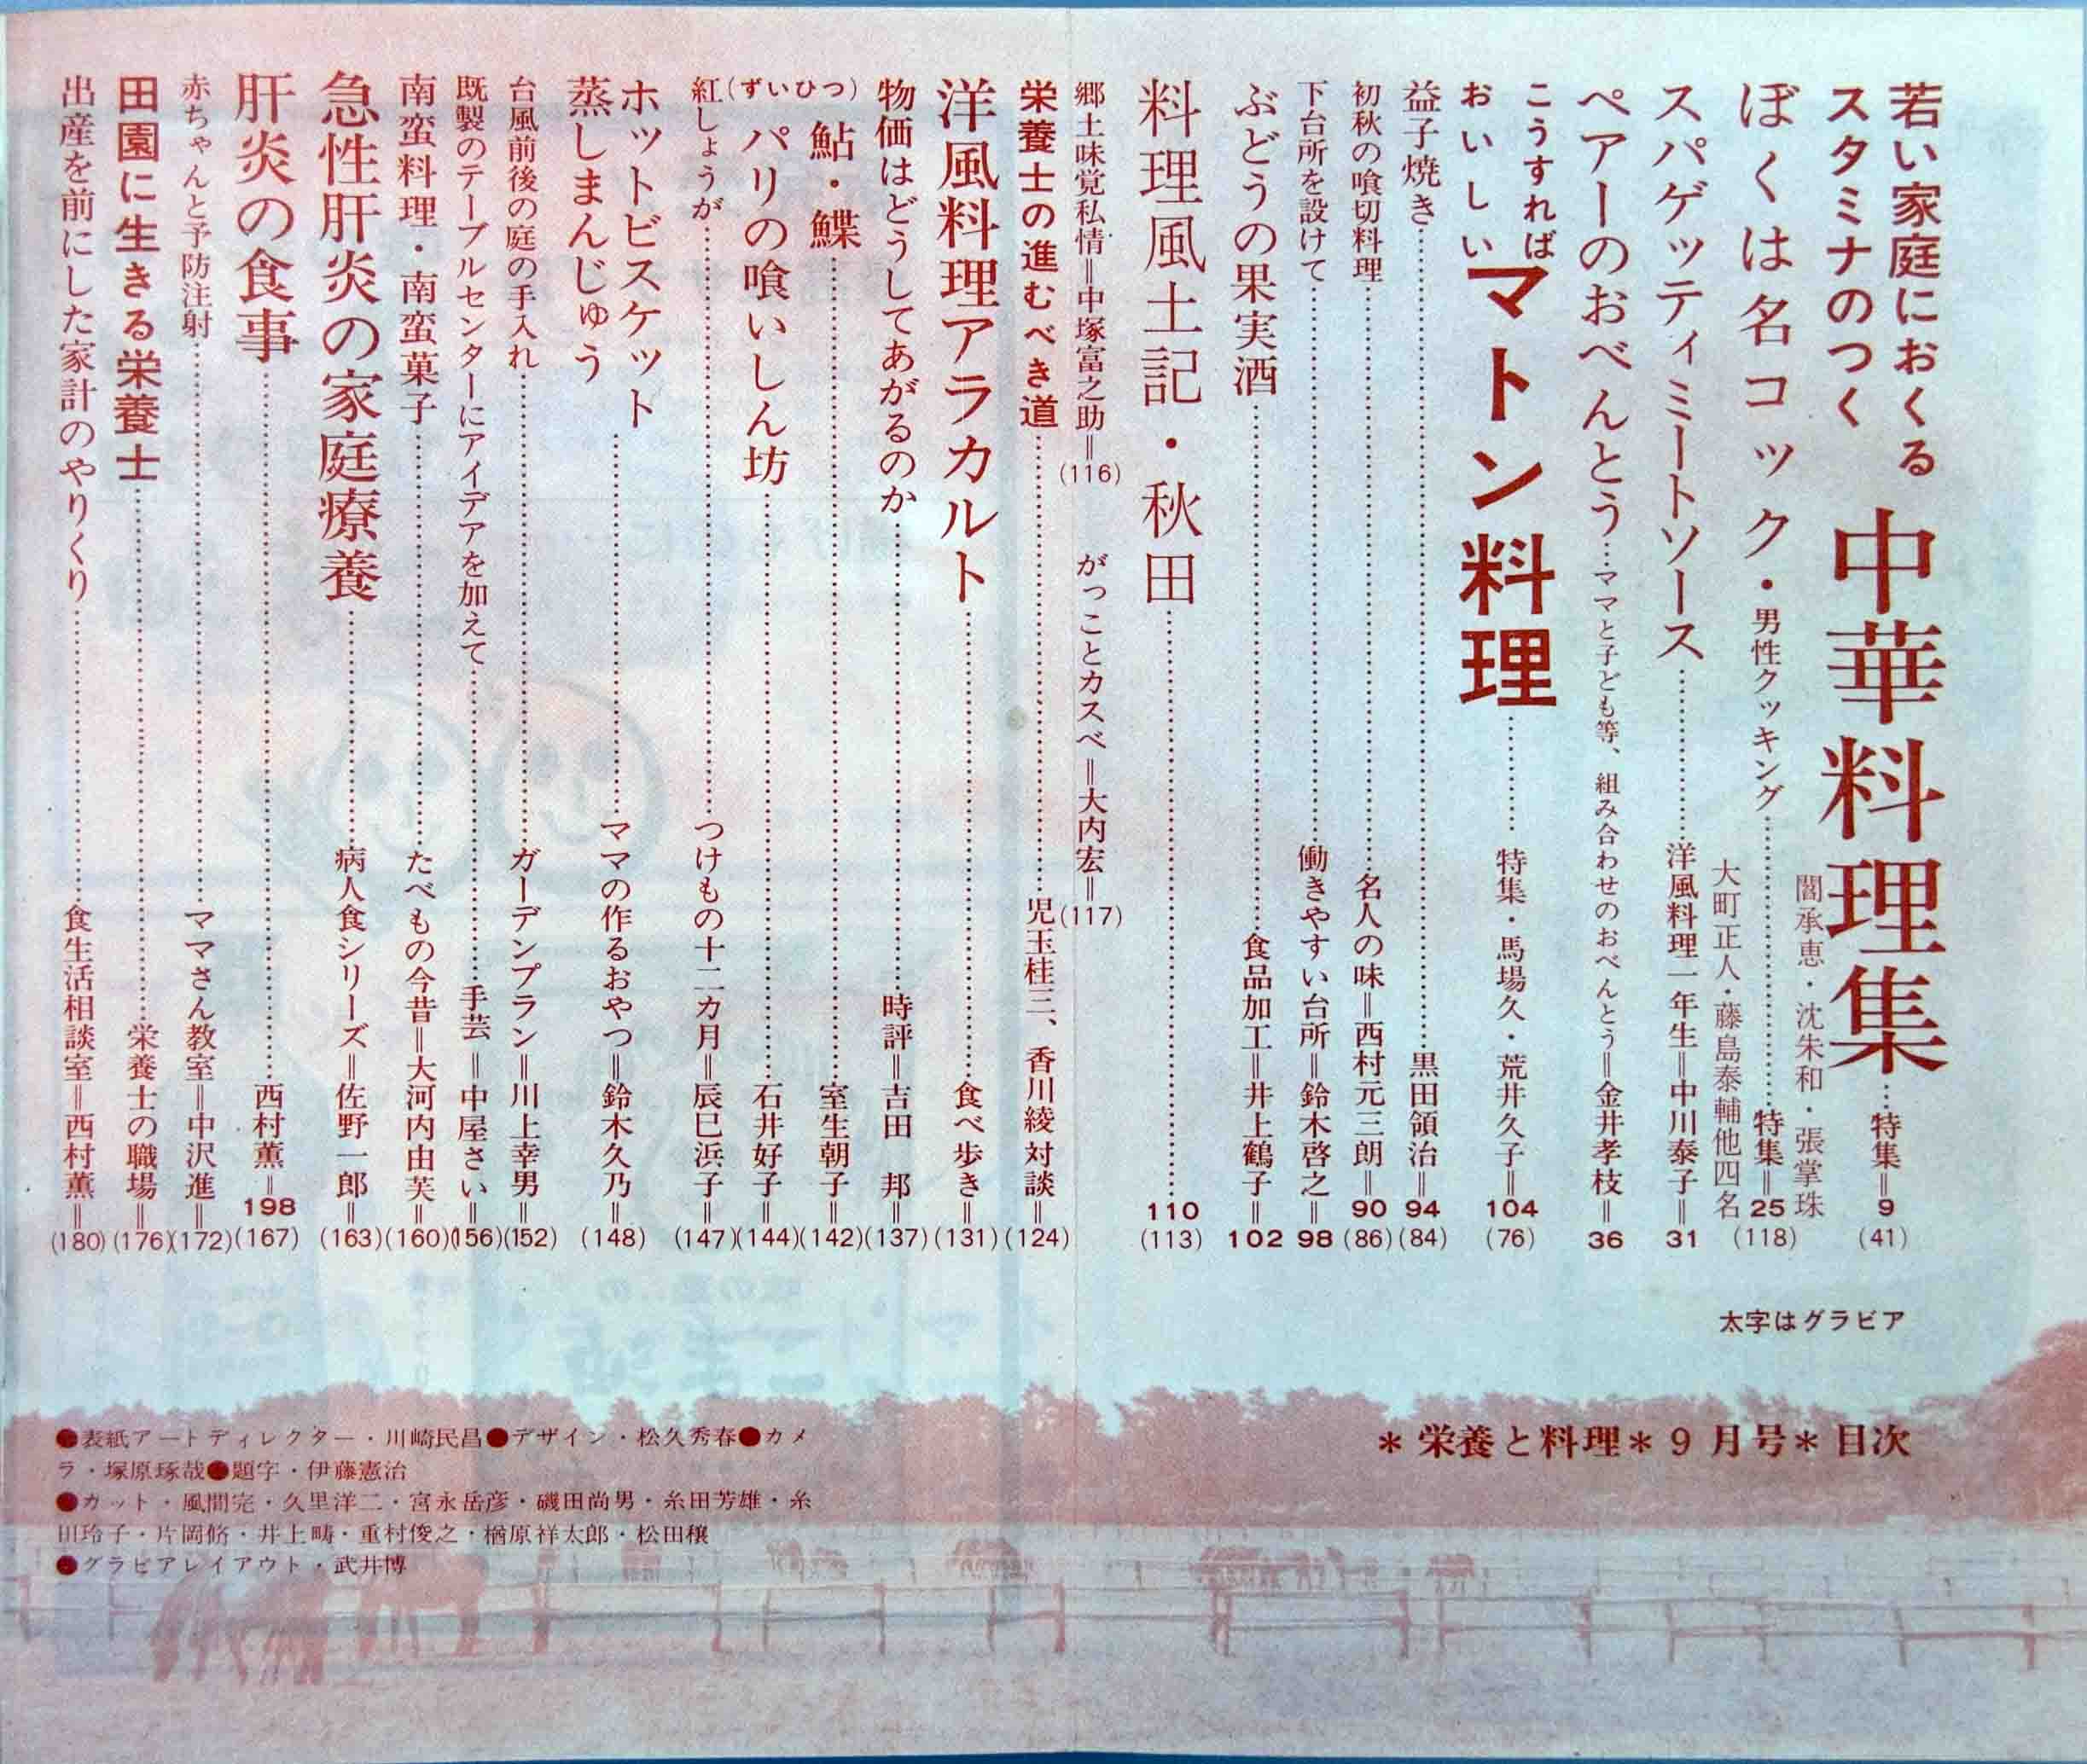 若い家庭におくる
スタミナのつく
中華料理集…特集＝9(41)
閻承恵・沈朱和・張掌珠
ぼくは名コック・男性クッキング……特集＝25(118)
大町正人・藤島泰輔他四名
スパゲッティミートソース……洋風料理一年生＝中川泰子＝31
ペアーのおべんとう…ママと子ども等、組み合わせのおべんとう＝金井孝枝＝36
こうすれば
おいしい
マトン料理……特集・馬場久・荒井久子＝104(76)
益子焼き……黒田領治＝94(84)
初秋の喰切料理……名人の味＝西村元三朗＝90(86)
下台所を設けて……働きやすい台所＝鈴木啓之＝98
ぶどうの果実酒……食品加工＝井上鶴子＝102
料理風土記・秋田……110(113)
郷土味覚私情＝中塚富之助＝(116)
がっことカスベ＝大内宏＝(117)
栄養士の進むべき道……児玉桂三、香川綾対談＝(124)
洋風料理アラカルト……食べ歩き＝(131)
物価はどうしてあがるのか……時評＝吉田　邦＝(137)
(ずいひつ)
鮎・鰈……室生朝子＝(142)
パリの喰いしん坊……石井好子＝(144)
紅しょうが……つけもの十二カ月＝辰巳浜子＝(147)
ホットビスケット
蒸しまんじゅう……ママの作るおやつ＝鈴木久乃＝(148)
台風前後の庭の手入れ……ガーデンプラン＝川上幸男＝(152)
既製のテーブルセンターにアイデアを加えて……手芸＝中屋さい＝(156)
南蛮料理・南蛮菓子……たべもの今昔＝大河内由芙＝(160)
急性肝炎の家庭療養……病人食シリーズ＝佐野一郎＝(163)
肝炎の食事……西村薫＝198(167)
赤ちゃんと予防注射……ママさん教室＝中沢進＝(172)
田園に生きる栄養士……栄養士の職場＝(176)
出産を前にした家計のやりくり……食生活相談室＝西村薫＝(180)
太字はグラビア
＊栄養と料理＊9月号＊目次
●表紙アートディレクター・川崎民昌●デザイン・松久秀春●カメ
ラ・塚原琢哉●題字・伊藤憲治
●カット・風間完・久里洋二・宮永岳彦・磯田尚男・糸田芳雄・糸
田玲子・片岡脩・井上畴・重村俊之・楢原祥太郎・松田穰
●グラビアレイアウト・武井博